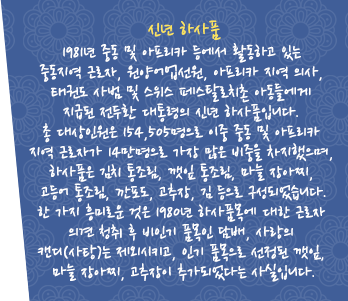 신년 하사품
1981년 중동 및 아프리카 등에서 활동하고 있는
중동지역 근로자, 원양어업선원, 아프리카 지역 의사,
태권도 사범 및 스위스 페스탈로치촌 아동들에게
지급된 전두환 대통령의 신년 하사품입니다.
총 대상인원은 154,505명으로 이중 중동 및 아프리카
지역 근로자가 14만명으로 가장 많은 비중을 차지했으며,
하사품은 김치 통조림, 깻잎 통조림, 마늘 장아찌,
고등어 통조림, 깐포도, 고추장, 김 등으로 구성되었습니다.
한 가지 흥미로운 것은 1980년 하사품목에 대한 근로자
의견 청취 후 비인기 품목인 담배, 사랑의
캔디(사탕)는 제외시키고, 인기 품목으로 선정된 깻잎,
마늘 장아찌, 고추장이 추가되었다는 사실입니다.